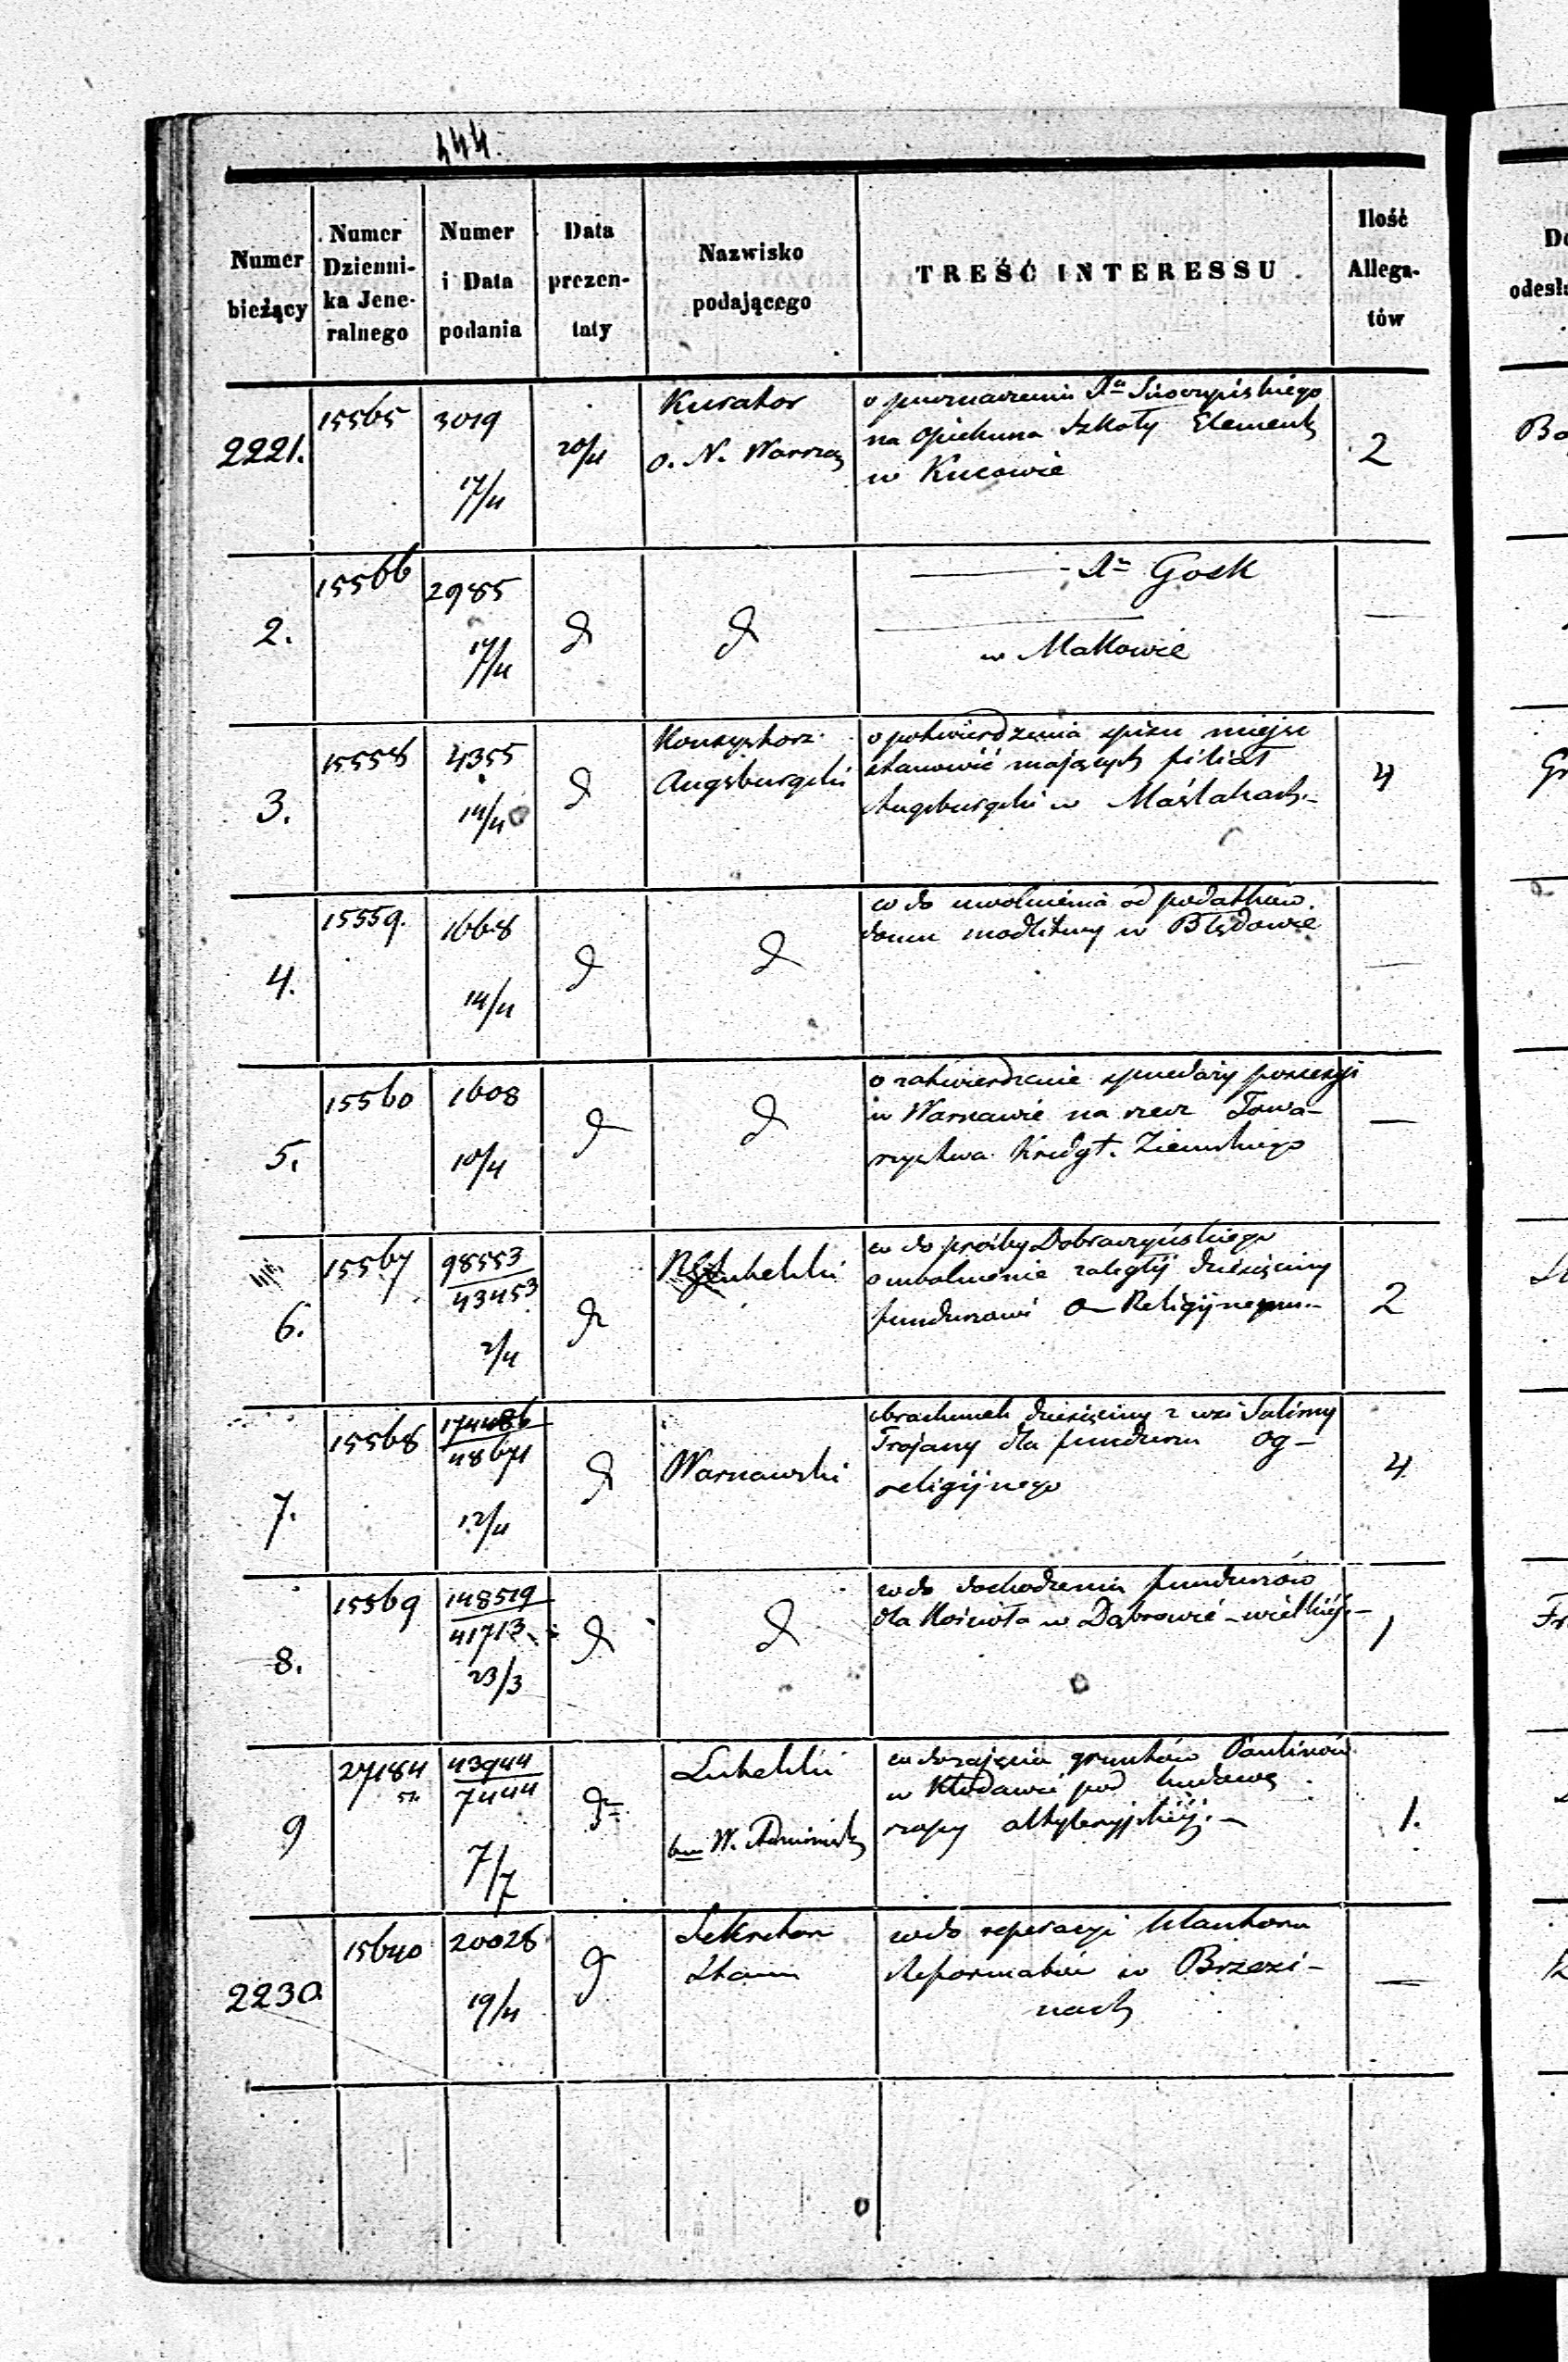 444.
Numer bieżący
Numer Dzienni-ka Jene-ralnego
Numer i Data podania
Data prezen-taty
Nazwisko podającego
TREŚĆ INTERESSU
Ilość Allega-tów
2221.
15565
3019
17/4
20/4
Kurator
o. N. Warszaw
na Opiekuna Szkoły Element
w Kucowie
2
2.
15566
2985
17/4
Gosk
w Makowie
—
3.
15558
4355
14/4
Konsystorz
Augsburgski
o potwierdzenia spisu miejsc
stanowić mających filiał
Augsburgski w Maślakach.
4
4.
15559.
1668
14/4
co do uwolnienia od podatków
domu modlitwy w Błędowie
—
5.
15560
1608
10/4
o zatwierdzenie sprzedaży possesyi
w Warszawie na rzecz Towa-
rzystwa Kredyt. Ziemskiego
—
6.
15567
98553
43453
2/4
Lubelski
co do prośby Dobraczyńskiego
o uwolnienie zaległej dziesięciny
funduszowi Religijnemu.
2
7.
15568
174486
48671
12/4
Warszawski
obrachunek dziesięciny z wsi
Trojany dla funduszu og-
religijnego
4
8.
15569
148519
41713
23/3
co do dochodzenia funduszów
dla Kościoła w Dąbrowie-wielkiéj.
1
9
27184
43944
7444
7/7
Lubelski
W. Administ
co do zajęcia gruntów Paulinów
w Kłodawie pod budowę
szopy
1.
2230
15640
20028
19/4
Sekretarz
Stanu
co do reperacyi Klasztoru
Reformatów w Brzezi-
nach
—